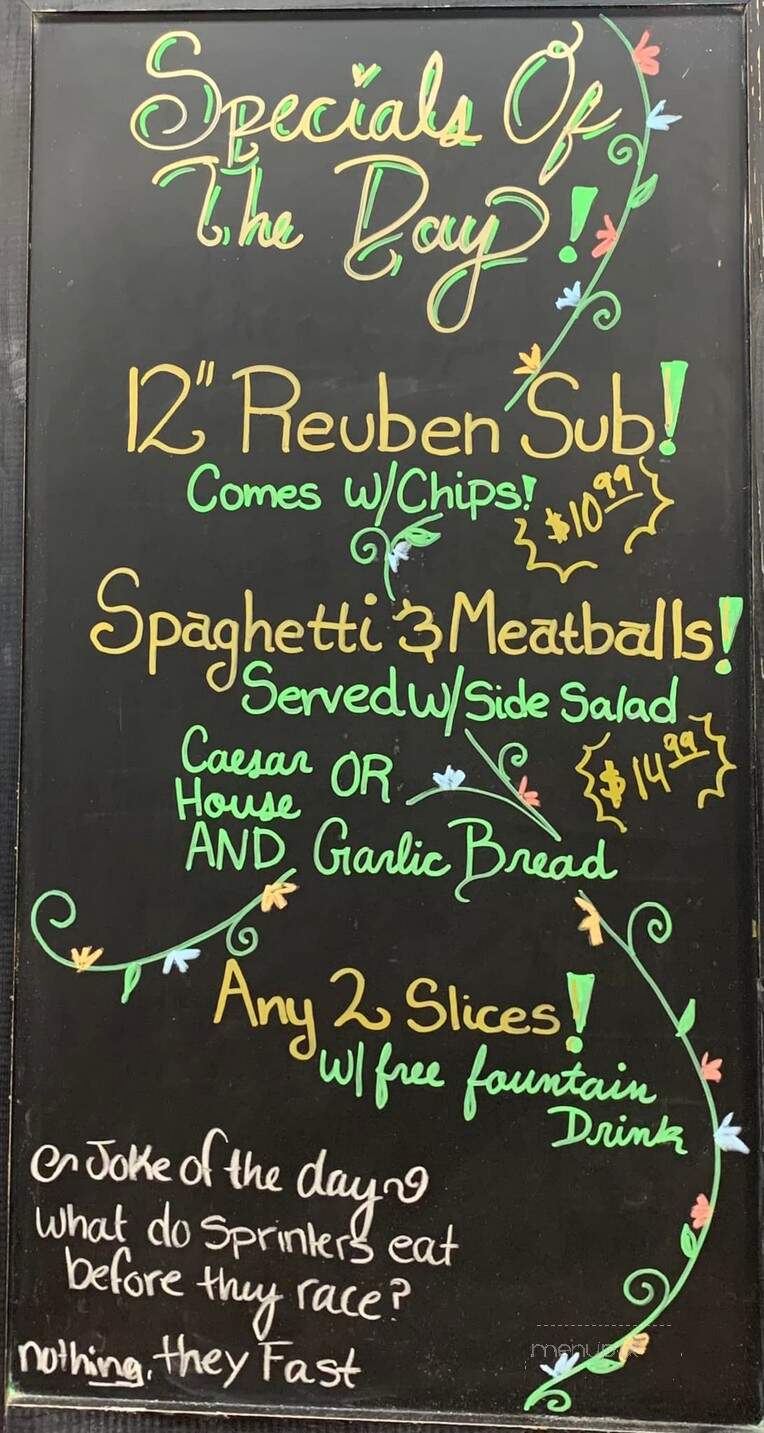 Specials Of
The Day!
12" Reuben Sub!
Comes w/Chips!
$10.99
Spaghetti & Meatballs!
Served w/Side Salad
Caesar OR
House
$14.99
AND Garlic Bread
Any 2 Slices!
w/ free fountain
Drink
Joke of the day
what do Sprinters eat
before they race?
nothing, they Fast